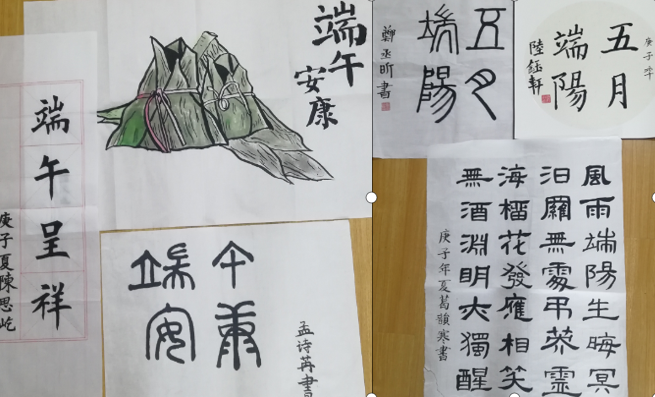 端午呈祥
庚子夏陳思屹
端午
安康
五月
端陽
鄭丞昕書
庚子年
五月
端陽
陸鈺軒
端午
安康
孟诗苒書
風雨端陽生晦冥
汨羅無處弔英靈
海榴花發應相笑
無酒淵明亦獨醒
庚子年夏葛韻寒書